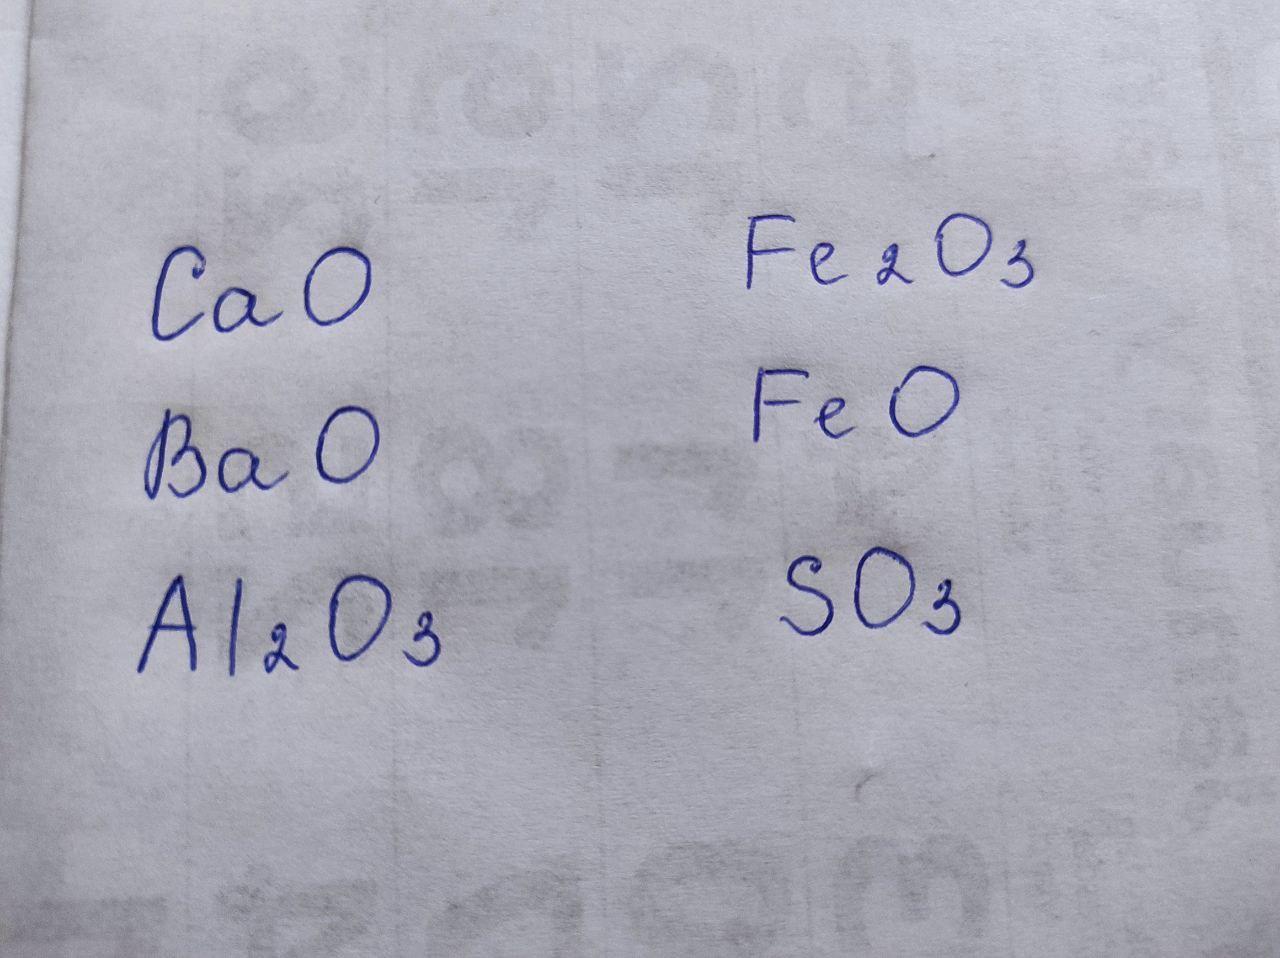 CaO
BaO
Al₂O₃
Fe₂O₃
FeO
SO₃